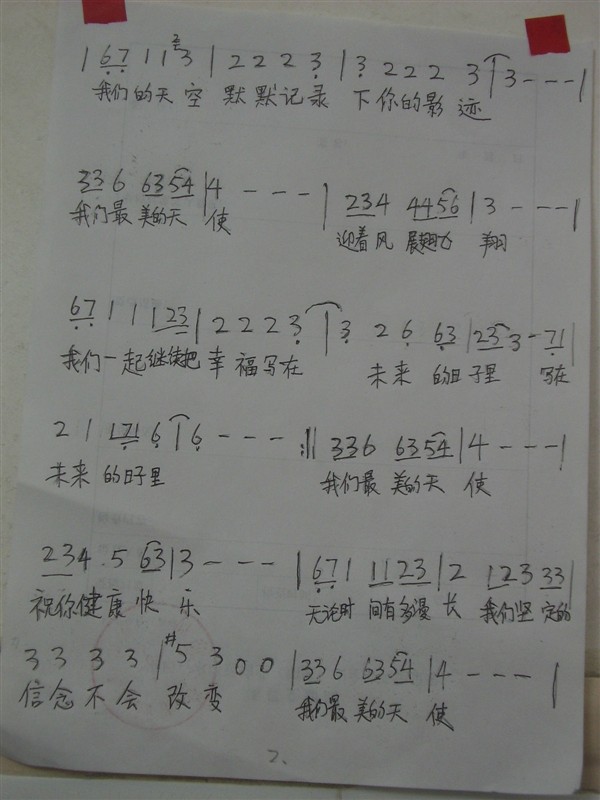 | 6 7 1 1 2/3 | 2 2 2 3 | 3 2 2 2 3 | 3 - - - |
我们的天空 默默记录 下你的影迹
3 3 6 6 3 5 4 | 4 - - - | 2 3 4 4 4 5 6 | 3 - - - |
我们最美的天使 迎着风展翅力翔
6 7 1 1 1 2 3 | 2 2 2 3 | 3 2 6 6 3 | 2 3 3 - 7 1 |
我们一起继续把幸福写在 未来的日子里 写在
2 1 1 7 1 6 | 6 - - - :|| 3 3 6 6 3 5 4 | 4 - - - |
未来的日子里 我们最美的天使
2 3 4 . 5 6 3 | 3 - - - | 6 7 1 1 1 2 3 | 2 1 2 3 3 3 |
祝你健康快乐 无论时间有多漫长 我们坚定的
3 3 3 3 | #5 3 0 0 | 3 3 6 6 3 5 4 | 4 - - - |
信念不会改变 我们最美的天使
2、